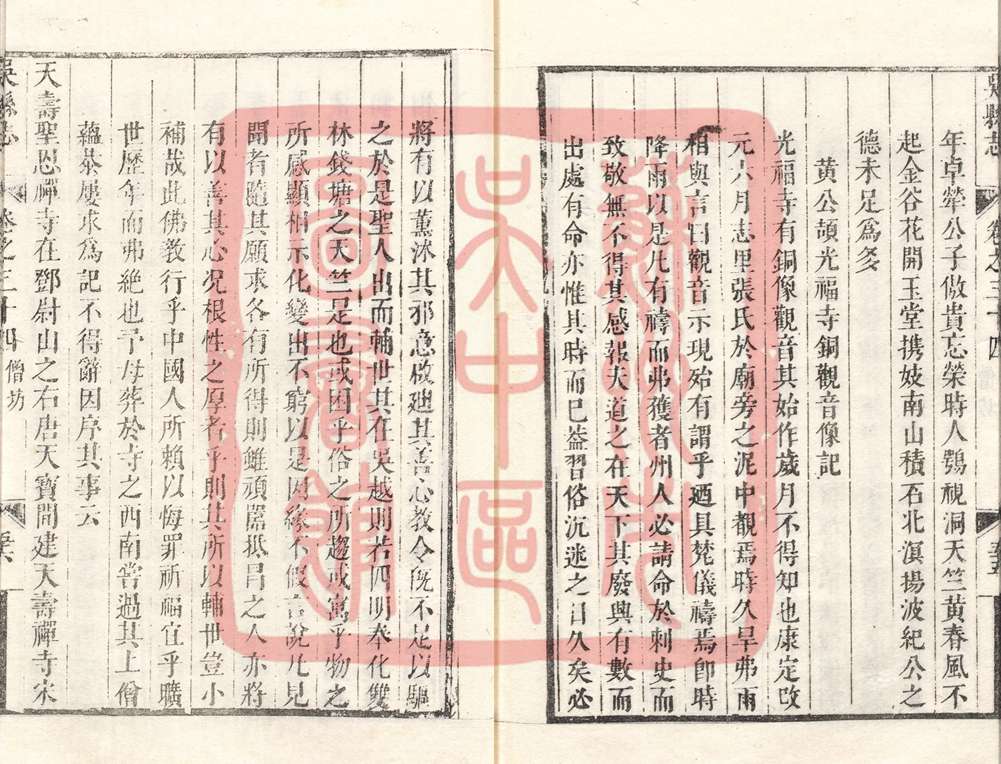 年卓犖公子傲貴忘榮時人鶚視洞天竺黃春風不
起金谷花開玉堂携妓南山積石北溟揚波紀公之
德未足爲多
黃公頡光福寺銅觀音像記
光福寺有銅像觀音其始作歲月不得知也康定改
元六月志里張氏於廟旁之泥中覩焉時久旱弗雨
相與言曰觀音示現殆有謂乎廼具梵儀禱焉卽時
降雨以是凡有禱而弗獲者州人必請命於刺史而
致敬無不得其感報夫道之在天下其廢興有數而
出處有命亦惟其時而已葢習俗沉迷之日久矣必
將有以薰沐其邪意啟廸其善心教令旣不足以驅
之於是聖人出而輔世其在吳越則若四明奉化雙
林錢塘之天竺是也或因乎俗之所趨或寓乎物之
所感顯相示化變出不窮以是因緣不假言說凡見
聞者隨其願求各有所得則雖頑嚚抵冒之人亦將
有以善其心况根性之厚者乎則其所以輔世豈小
補哉此佛教行乎中國人所賴以悔罪祈福宜乎曠
世歷年而弗絶也予母葬於寺之西南嘗過其上僧
蘊恭屢求爲記不得辭因序其事云
天壽聖恩禪寺在鄧尉山之右唐天寶間建天壽禪寺宋
吳縣志
卷之三十四
僧坊
蘇州市
吳中區
圖書館